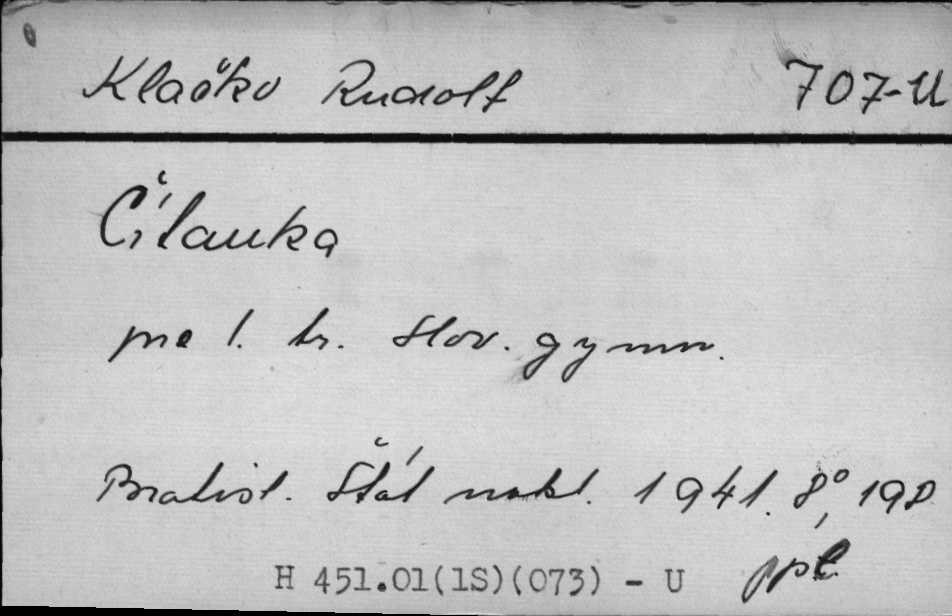 Klačko Rudolf 707-U
Čítanka
pre 1. tr. slov. gymn.
Bratisl. Štát nakl. 1941. 8°, 198
ppl.
H 451.01(1S)(073) - U